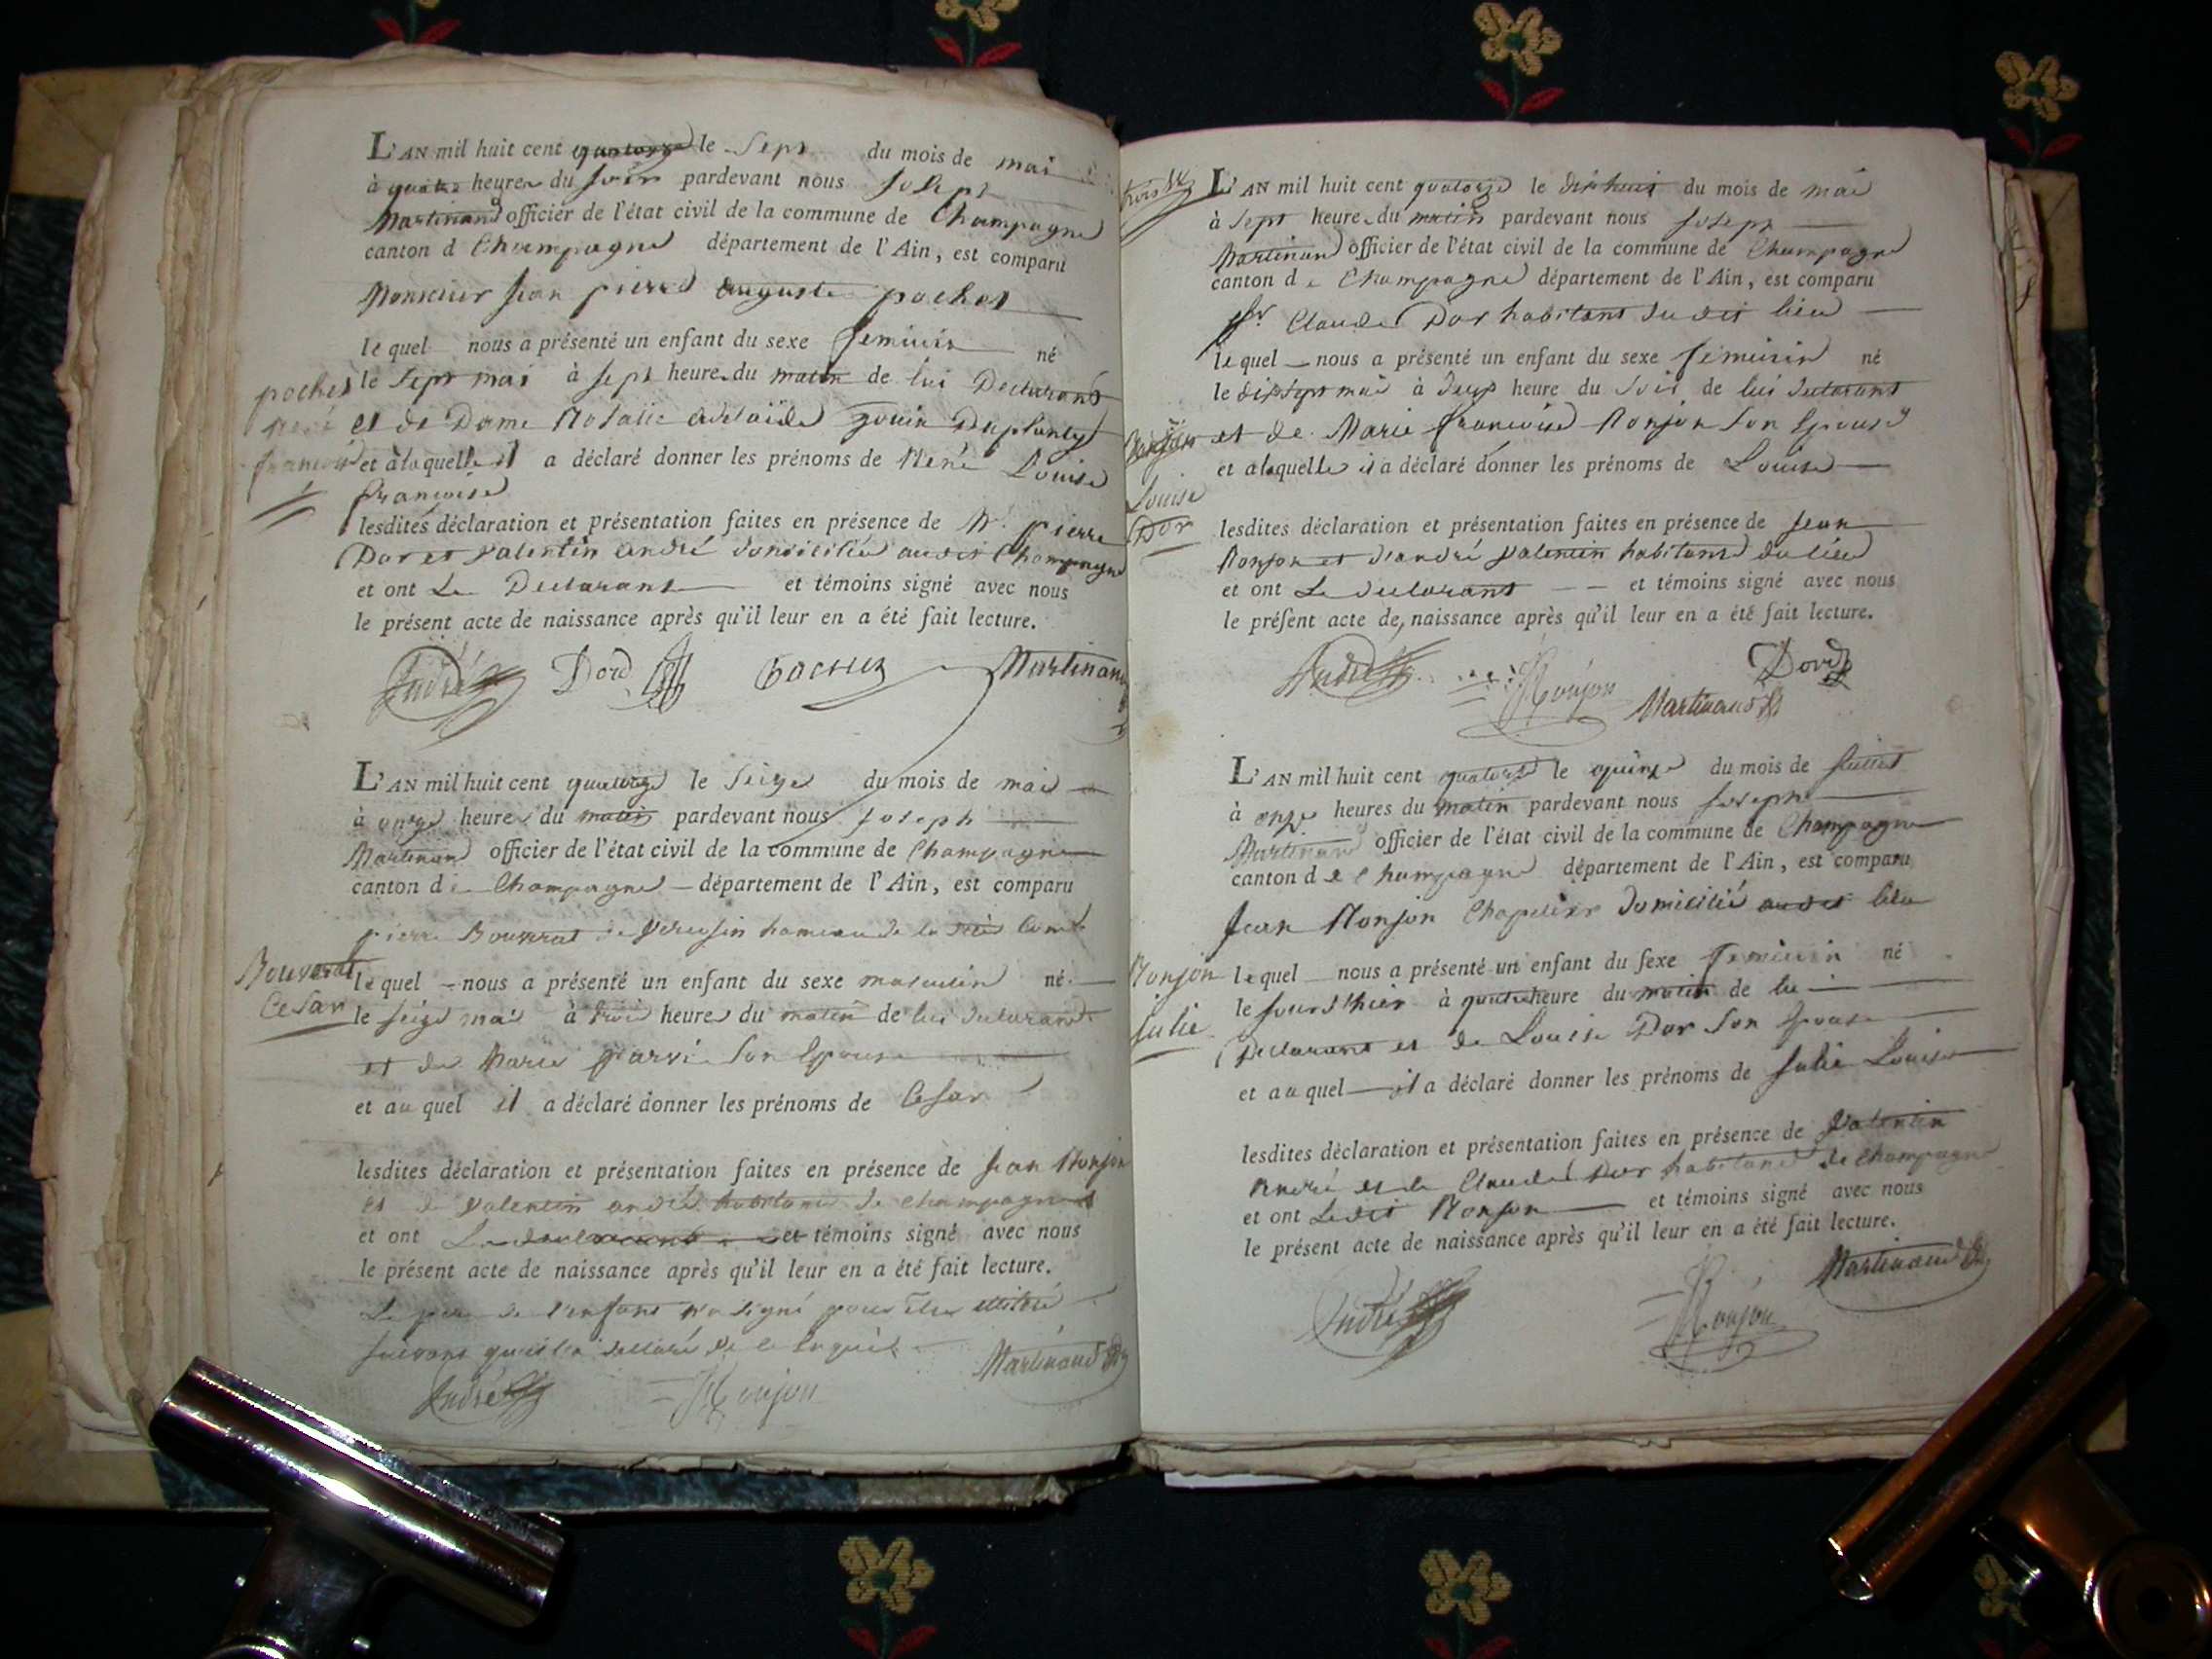 L'AN mil huit cent quatorze le Sept du mois de mai
à quatre heures du soir pardevant nous Joseph
Martinand officier de l'état civil de la commune de Champagne
canton d Champagne département de l'Ain, est comparu
Monsieur Jean pierre auguste pochet
le quel nous a présenté un enfant du sexe feminin né
le sept mai à sept heures du matin de lui Declarant
et de Dame Rosalie adelaïde
et à laquelle il a déclaré donner les prénoms de Réné Louise
françoise
lesdites déclaration et présentation faites en présence de Mr. pierre
Dor et valentin andré domiciliés audit Champagne
et ont Le Declarant et témoins signé avec nous
le présent acte de naissance après qu'il leur en a été fait lecture.
pochet
réné
françoise
André Dord Pochet Martinand
L'AN mil huit cent quatorze le seize du mois de mai
à onze heures du matin pardevant nous Joseph
Martinand officier de l'état civil de la commune de Champagne
canton de Champagne département de l'Ain, est comparu
pierre Bouvarat de hameau de la
le quel nous a présenté un enfant du sexe masculin né
le seize mai à trois heures du matin de lui declarant
et de Marie son Epouse
et au quel il a déclaré donner les prénoms de Cesar
lesdites déclaration et présentation faites en présence de Jean Monjon
et de valentin andré habitants de Champagne
et ont et témoins signé avec nous
le présent acte de naissance après qu'il leur en a été fait lecture.
Le pere de l'enfant n'a signé pour être
suivant qu'il l'a declaré de ce enquis
Bouvarat
Cesar
André Monjon Martinand
L'AN mil huit cent quatorze le dix huit du mois de mai
à sept heures du matin pardevant nous Joseph
Martinand officier de l'état civil de la commune de Champagne
canton de Champagne département de l'Ain, est comparu
Sr. Claude Dor habitant du dit lieu
le quel nous a présenté un enfant du sexe féminin né
le dix sept mai à deux heure du soir de lui declarant
et de Marie françoise Monjon son Epouse
et a laquelle il a déclaré donner les prénoms de Louise
Louise
Dor
lesdites déclaration et présentation faites en présence de Jean
Monjon et d'andré valentin habitans du lieu
et ont Le declarant et témoins signé avec nous
le présent acte de naissance après qu'il leur en a été fait lecture.
André Monjon Martinand Dord
L'AN mil huit cent quatorze le quinze du mois de juillet
à onze heures du matin pardevant nous Joseph
Martinand officier de l'état civil de la commune de Champagne
canton de Champagne département de l'Ain, est comparu
Jean Monjon Chapelier domicilié audit lieu
le quel nous a présenté un enfant du sexe feminin né
le jourd'hier à quatre heure du matin de lui
Declarant et de Louise Dor son Epouse
et au quel il a déclaré donner les prénoms de Julie Louise
Monjon
Julie
lesdites déclaration et présentation faites en présence de Valentin
André et de Claude Dor habitans de Champagne
et ont Ledit Monjon et témoins signé avec nous
le présent acte de naissance après qu'il leur en a été fait lecture.
André Monjon Martinand